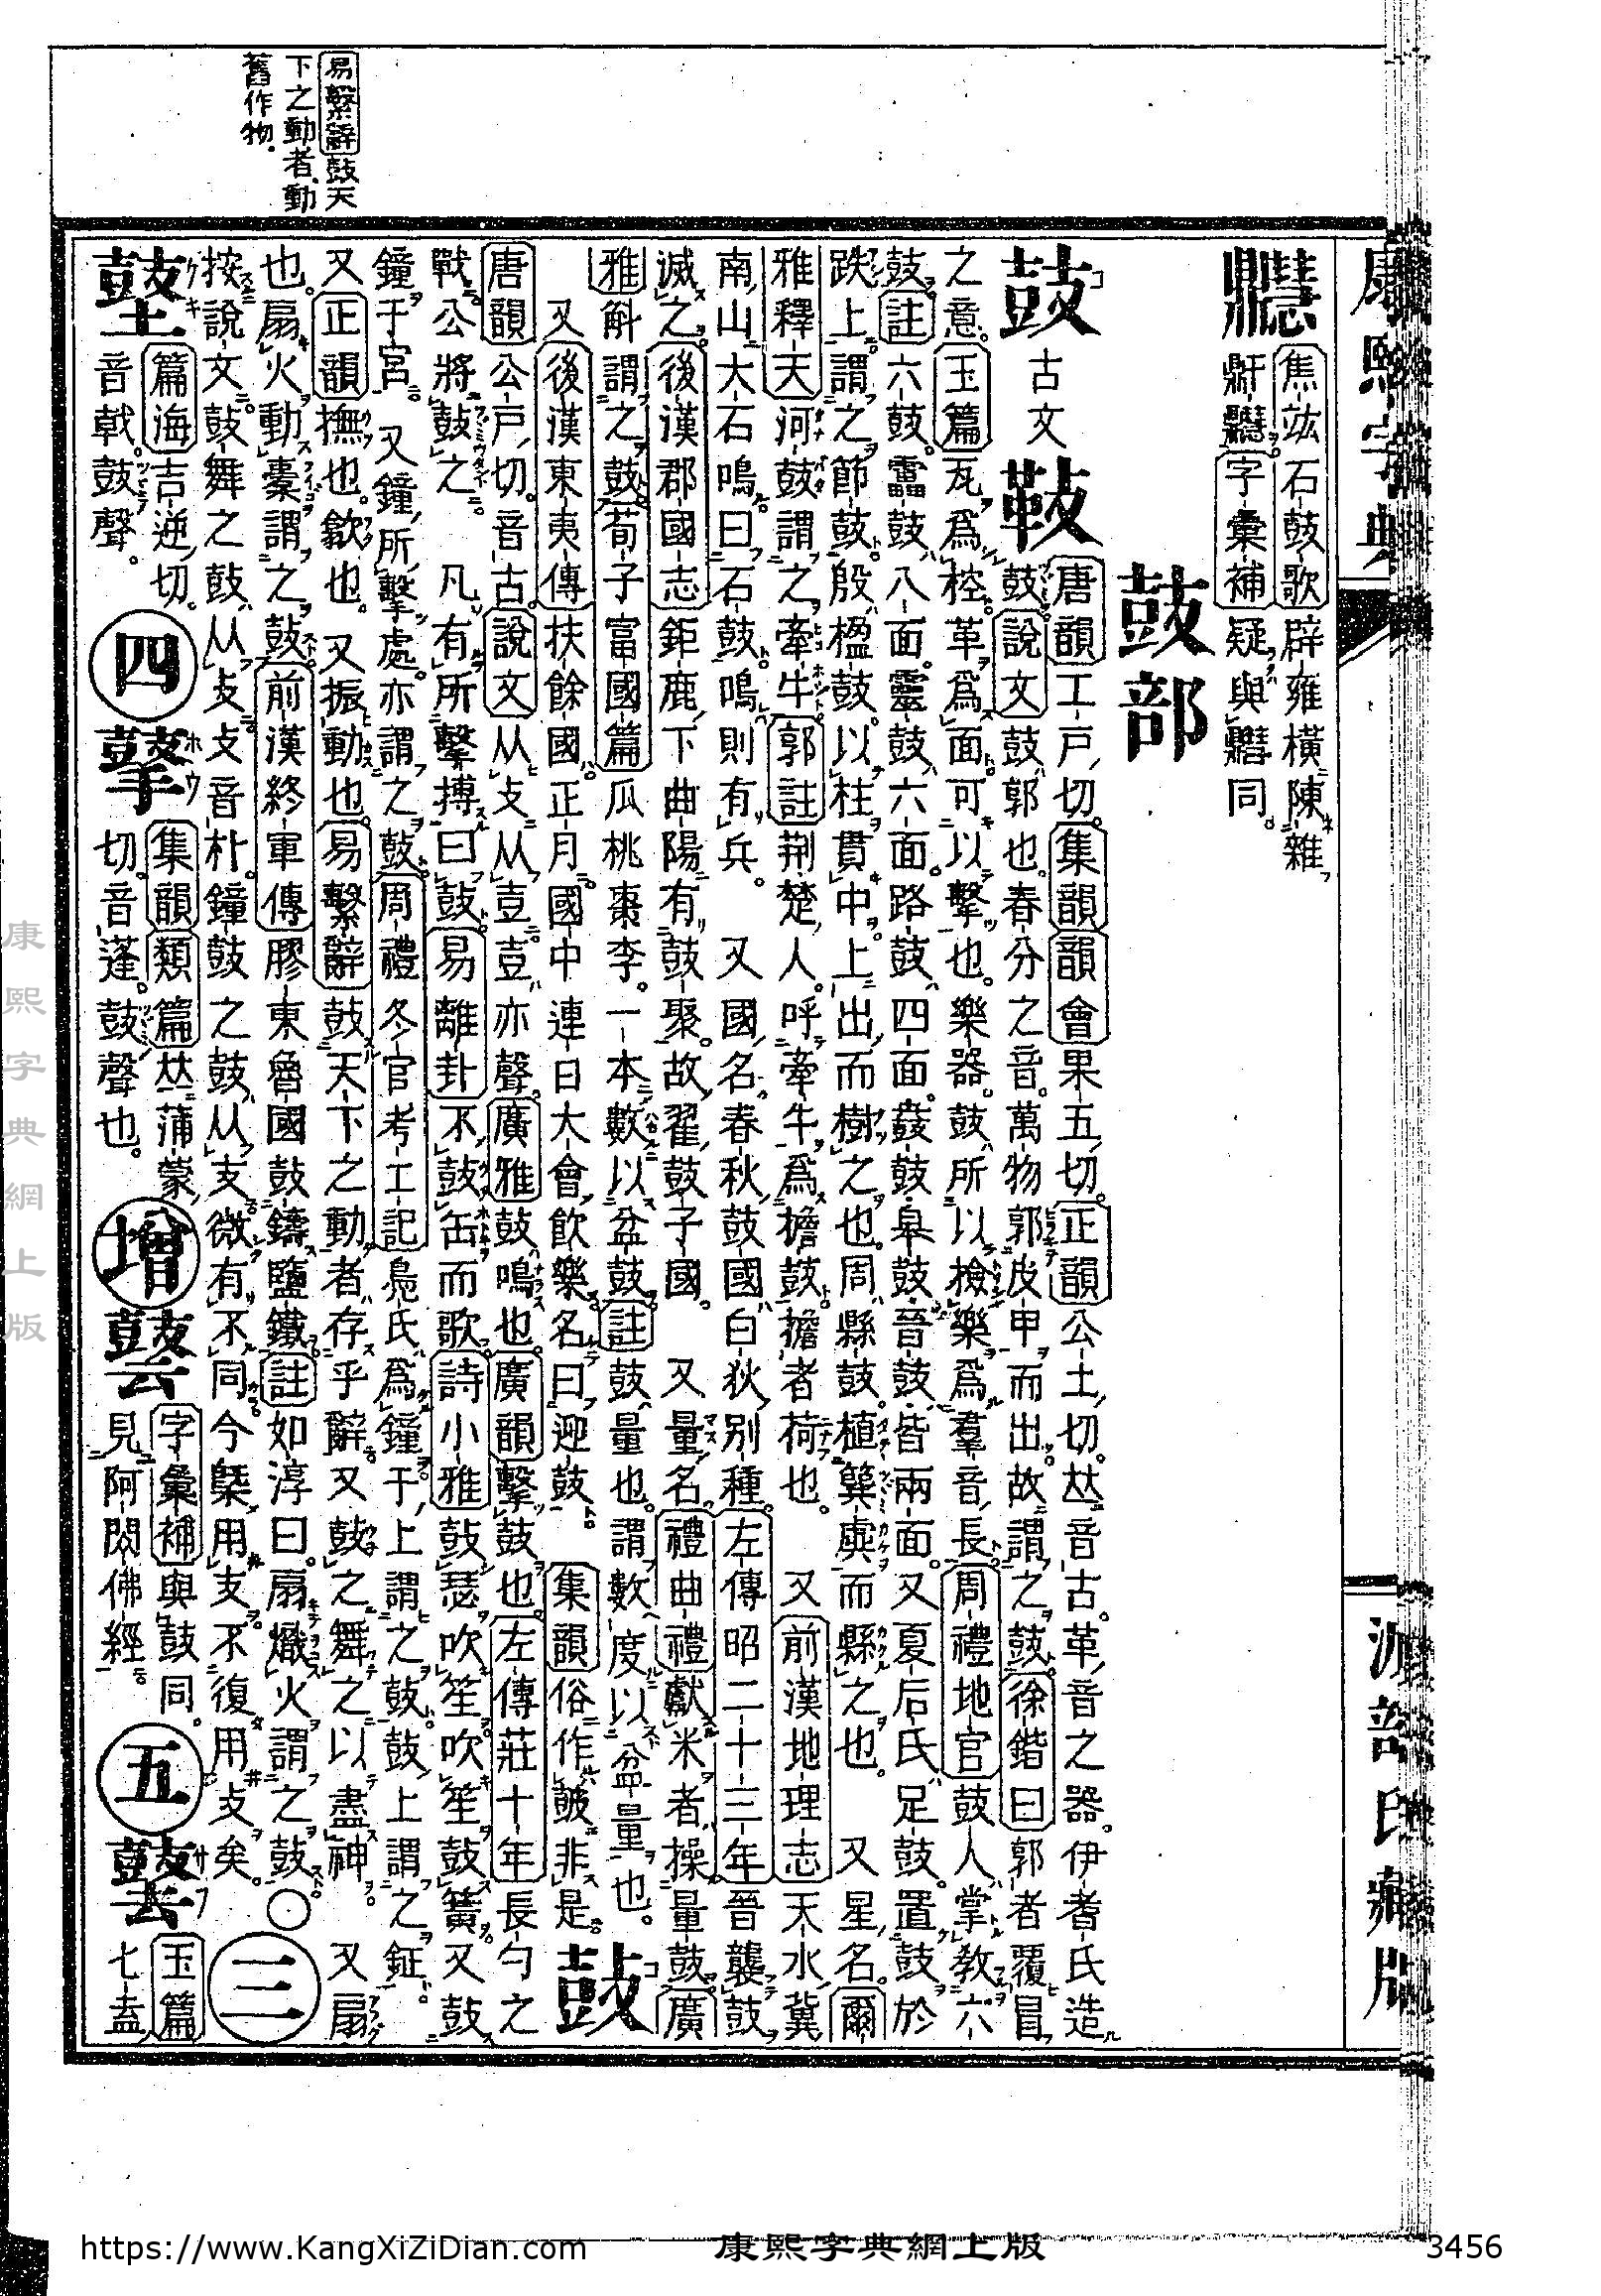 易繫辭鼓天
下之動者動
舊作物
康熙字典
焦竑石鼓歌辟雍橫陳雜
字彙補疑與同。
鼓部
鼓 古文
唐韻工戸切。集韻韻會果五切。正韻公土切。𠀤音古。革音之器。伊耆氏造
鼓。說文鼓郭也。春分之音。萬物郭皮甲而出。故謂之鼓。徐鍇曰郭者覆冒
之意。玉篇瓦爲椌。革爲面。可以擊也。樂器。鼓所以檢樂爲羣音長。周禮地官鼓人掌教六
鼓。註六鼓。靁鼓八面。靈鼓六面。路鼓四面。鼖鼓皋鼓晉鼓皆兩面。又夏后氏足鼓。置鼓於
跌上。謂之節鼓。殷楹鼓。以柱貫中。上出而樹之也。周縣鼓。植簨虡而縣之也。又星名。爾
雅釋天河鼓謂之牽牛。郭註荆楚人。呼牽牛爲擔鼓。擔者荷也。又前漢地理志天水冀
南山大石鳴曰石鼓。鳴則有兵。又國名。春秋鼓國白狄别種。左傳昭二十三年晉襲鼓
滅之。後漢郡國志鉅鹿下曲陽有鼓聚。故翟鼓子國。又量名。禮曲禮獻米者操量鼓。廣
雅斛謂之鼓。荀子富國篇瓜桃棗李。一本數以盆鼓。註鼓量也。謂數度以盆量也。
又後漢東夷傳扶餘國正月國中連日大會。飮樂名曰迎鼓。集韻俗作皷非是。鼓
唐韻公戸切。音古。說文从攴从壴。壴亦聲。廣雅鼓鳴也。廣韻擊鼓也。左傳莊十年長勺之
戰公將鼓之。凡有所擊搏曰鼓。易離卦不鼓缶而歌。詩小雅鼓瑟吹笙。吹笙鼓簧。又鼓
鐘于宮。又鐘所擊處。亦謂之鼓。周禮冬官考工記鳧氏爲鐘。于上謂之鼓。鼓上謂之鉦。
又正韻撫也。歛也。又振動也。易繫辭鼓天下之動者存乎辭。又鼓之舞之以盡神。又扇
也。扇火動橐謂之鼓。前漢終軍傳膠東魯國鼓鑄鹽鐵。註如淳曰。扇熾火謂之鼓。○
按說文。鼓舞之鼓从攴。攴音朴。鐘鼓之鼓从支。微有不同。今槩用支。不復用攴矣。三
篇海吉逆切。
音戟。鼓聲。
四
集韻類篇𠀤蒲蒙
切。音蓬。鼓聲也。
增
字彙補與鼓同。
見阿閦佛經。
五
玉篇
七盍
康熙字典網上版
https://www.KangXiZiDian.com 康熙字典網上版 3456